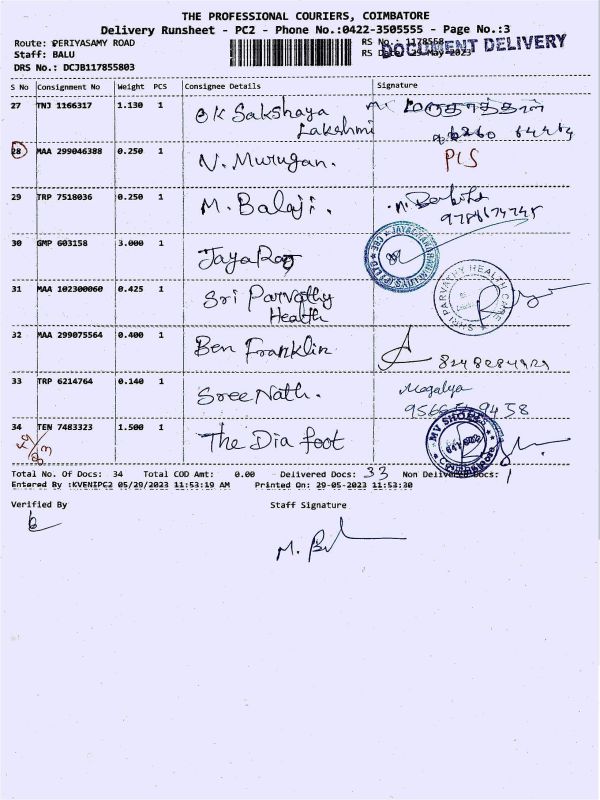 THE PROFESSIONAL COURIERS, COIMBATORE
Delivery Runsheet - PC2 - Phone No.:0422-3505555 - Page No.:3
Route: PERIYASAMY ROAD
RS No.: 1178558
Staff: BALU
RS Date: 29-May-2023
DOCUMENT DELIVERY
DRS No.: DCJB117855803
S No Consignment No Weight PCS Consignee Details Signature
27 TNJ 1166317 1.130 1 OK Sakshaya
Lakshmi
28 MAA 299046388 0.250 1 N. Murugan.
29 TRP 7518036 0.250 1 M. Balaji.
30 GMP 603158 3.000 1 JayaRaj
31 MAA 102300060 0.425 1 Sri Parvathy
Health
SHRI PARVATHY HEALTH CARE
32 MAA 299075564 0.400 1 Ben Franklin
33 TRP 6214764 0.140 1 Sree Nath. Megalya
34 TEN 7483323 1.500 1 The Dia foot
MV SHOES
Total No. Of Docs: 34 Total COD Amt: 0.00 Delivered Docs: 33 Non Delivered Docs: 1
Entered By :KVENIPC2 05/29/2023 11:53:19 AM Printed On: 29-05-2023 11:53:30
Verified By Staff Signature